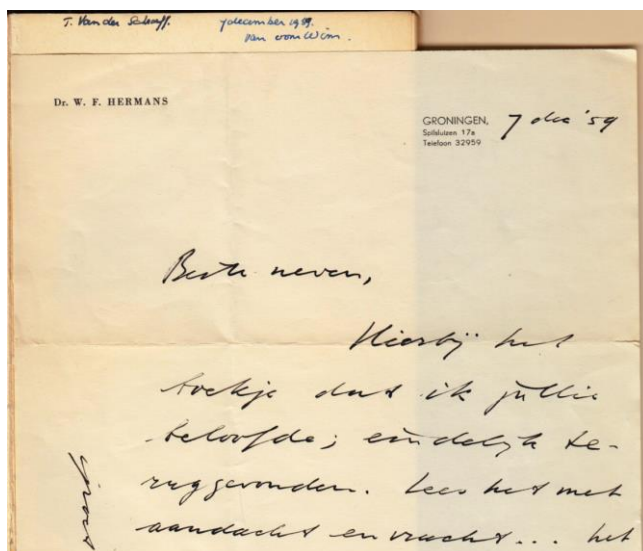 T. Van der Schuyff. 7 december 1959.
van oom Wim.
Dr. W. F. HERMANS
GRONINGEN, 7 dec '59
Spilsluizen 17a
Telefoon 32959
Beste neven,
Hierbij het
boekje dat ik jullie
beloofde; eindelijk te-
ruggevonden. Lees het met
aandacht en vracht... het